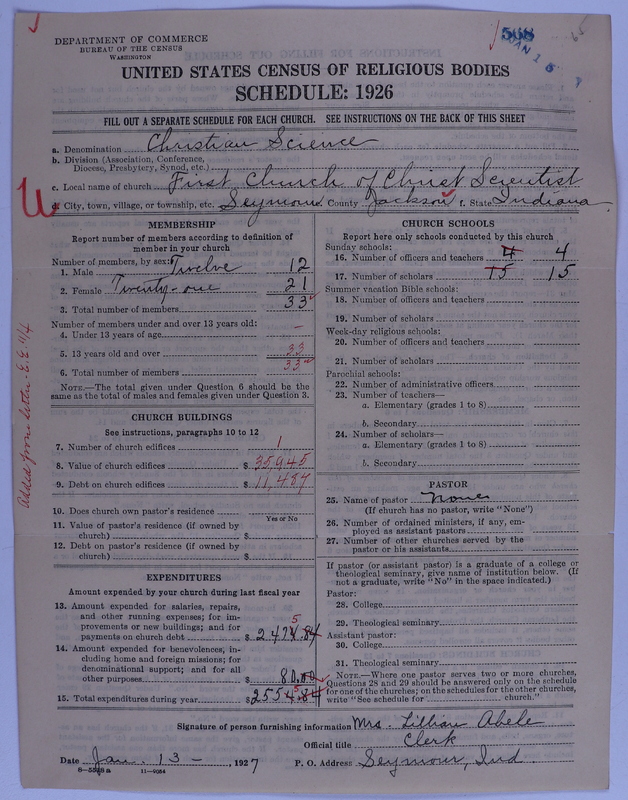 DEPARTMENT OF COMMERCE
BUREAU OF THE CENSUS
WASHINGTON
568
JAN 15
UNITED STATES CENSUS OF RELIGIOUS BODIES
SCHEDULE: 1926
FILL OUT A SEPARATE SCHEDULE FOR EACH CHURCH. SEE INSTRUCTIONS ON THE BACK OF THIS SHEET
a. Denomination Christian Science
b. Division (Association, Conference, Diocese, Presbytery, Synod, etc.)
c. Local name of church First Church of Christ Scientist
d. City, town, village, or township, etc. Seymour County Jackson f. State Indiana
MEMBERSHIP
Report number of members according to definition of
member in your church
Number of members, by sex:
1. Male Twelve 12
2. Female Twenty-one 21
3. Total number of members 33
Number of members under and over 13 years old:
4. Under 13 years of age –
5. 13 years old and over 33
6. Total number of members 33
NOTE.—The total given under Question 6 should be the
same as the total of males and females given under Question 3.
CHURCH BUILDINGS
See instructions, paragraphs 10 to 12
7. Number of church edifices 1
8. Value of church edifices $ 35,945
9. Debt on church edifices $ 11,457
Added from letter. E.E. 11/4
10. Does church own pastor's residence
Yes or No
11. Value of pastor's residence (if owned by
church) $
12. Debt on pastor's residence (if owned by
church) $
EXPENDITURES
Amount expended by your church during last fiscal year
13. Amount expended for salaries, repairs,
and other running expenses; for im-
provements or new buildings; and for
payments on church debt $ 2474.84 5
14. Amount expended for benevolences, in-
cluding home and foreign missions; for
denominational support; and for all
other purposes 80.00
15. Total expenditures during year $ 2554.84 5
CHURCH SCHOOLS
Report here only schools conducted by this church
Sunday schools:
16. Number of officers and teachers 4 4
17. Number of scholars 15 15
Summer vacation Bible schools:
18. Number of officers and teachers
19. Number of scholars
Week-day religious schools:
20. Number of officers and teachers
21. Number of scholars
Parochial schools:
22. Number of administrative officers
23. Number of teachers—
a. Elementary (grades 1 to 8)
b. Secondary
24. Number of scholars—
a. Elementary (grades 1 to 8)
b. Secondary
PASTOR
25. Name of pastor None
(If church has no pastor, write "None")
26. Number of ordained ministers, if any, em-
ployed as assistant pastors
27. Number of other churches served by the
pastor or his assistants
If pastor (or assistant pastor) is a graduate of a college or
theological seminary, give name of institution below. (If
not a graduate, write "No" in the space indicated.)
Pastor:
28. College
29. Theological seminary
Assistant pastor:
30. College
31. Theological seminary
NOTE.—Where one pastor serves two or more churches,
Questions 28 and 29 should be answered only on the schedule
for one of the churches; on the schedules for the other churches,
write "See schedule for church."
Signature of person furnishing information Mrs. Lillian Abele
Official title Clerk
Date Jan. 13 –, 1927 P. O. Address Seymour, Ind
8—5528a 11—9054